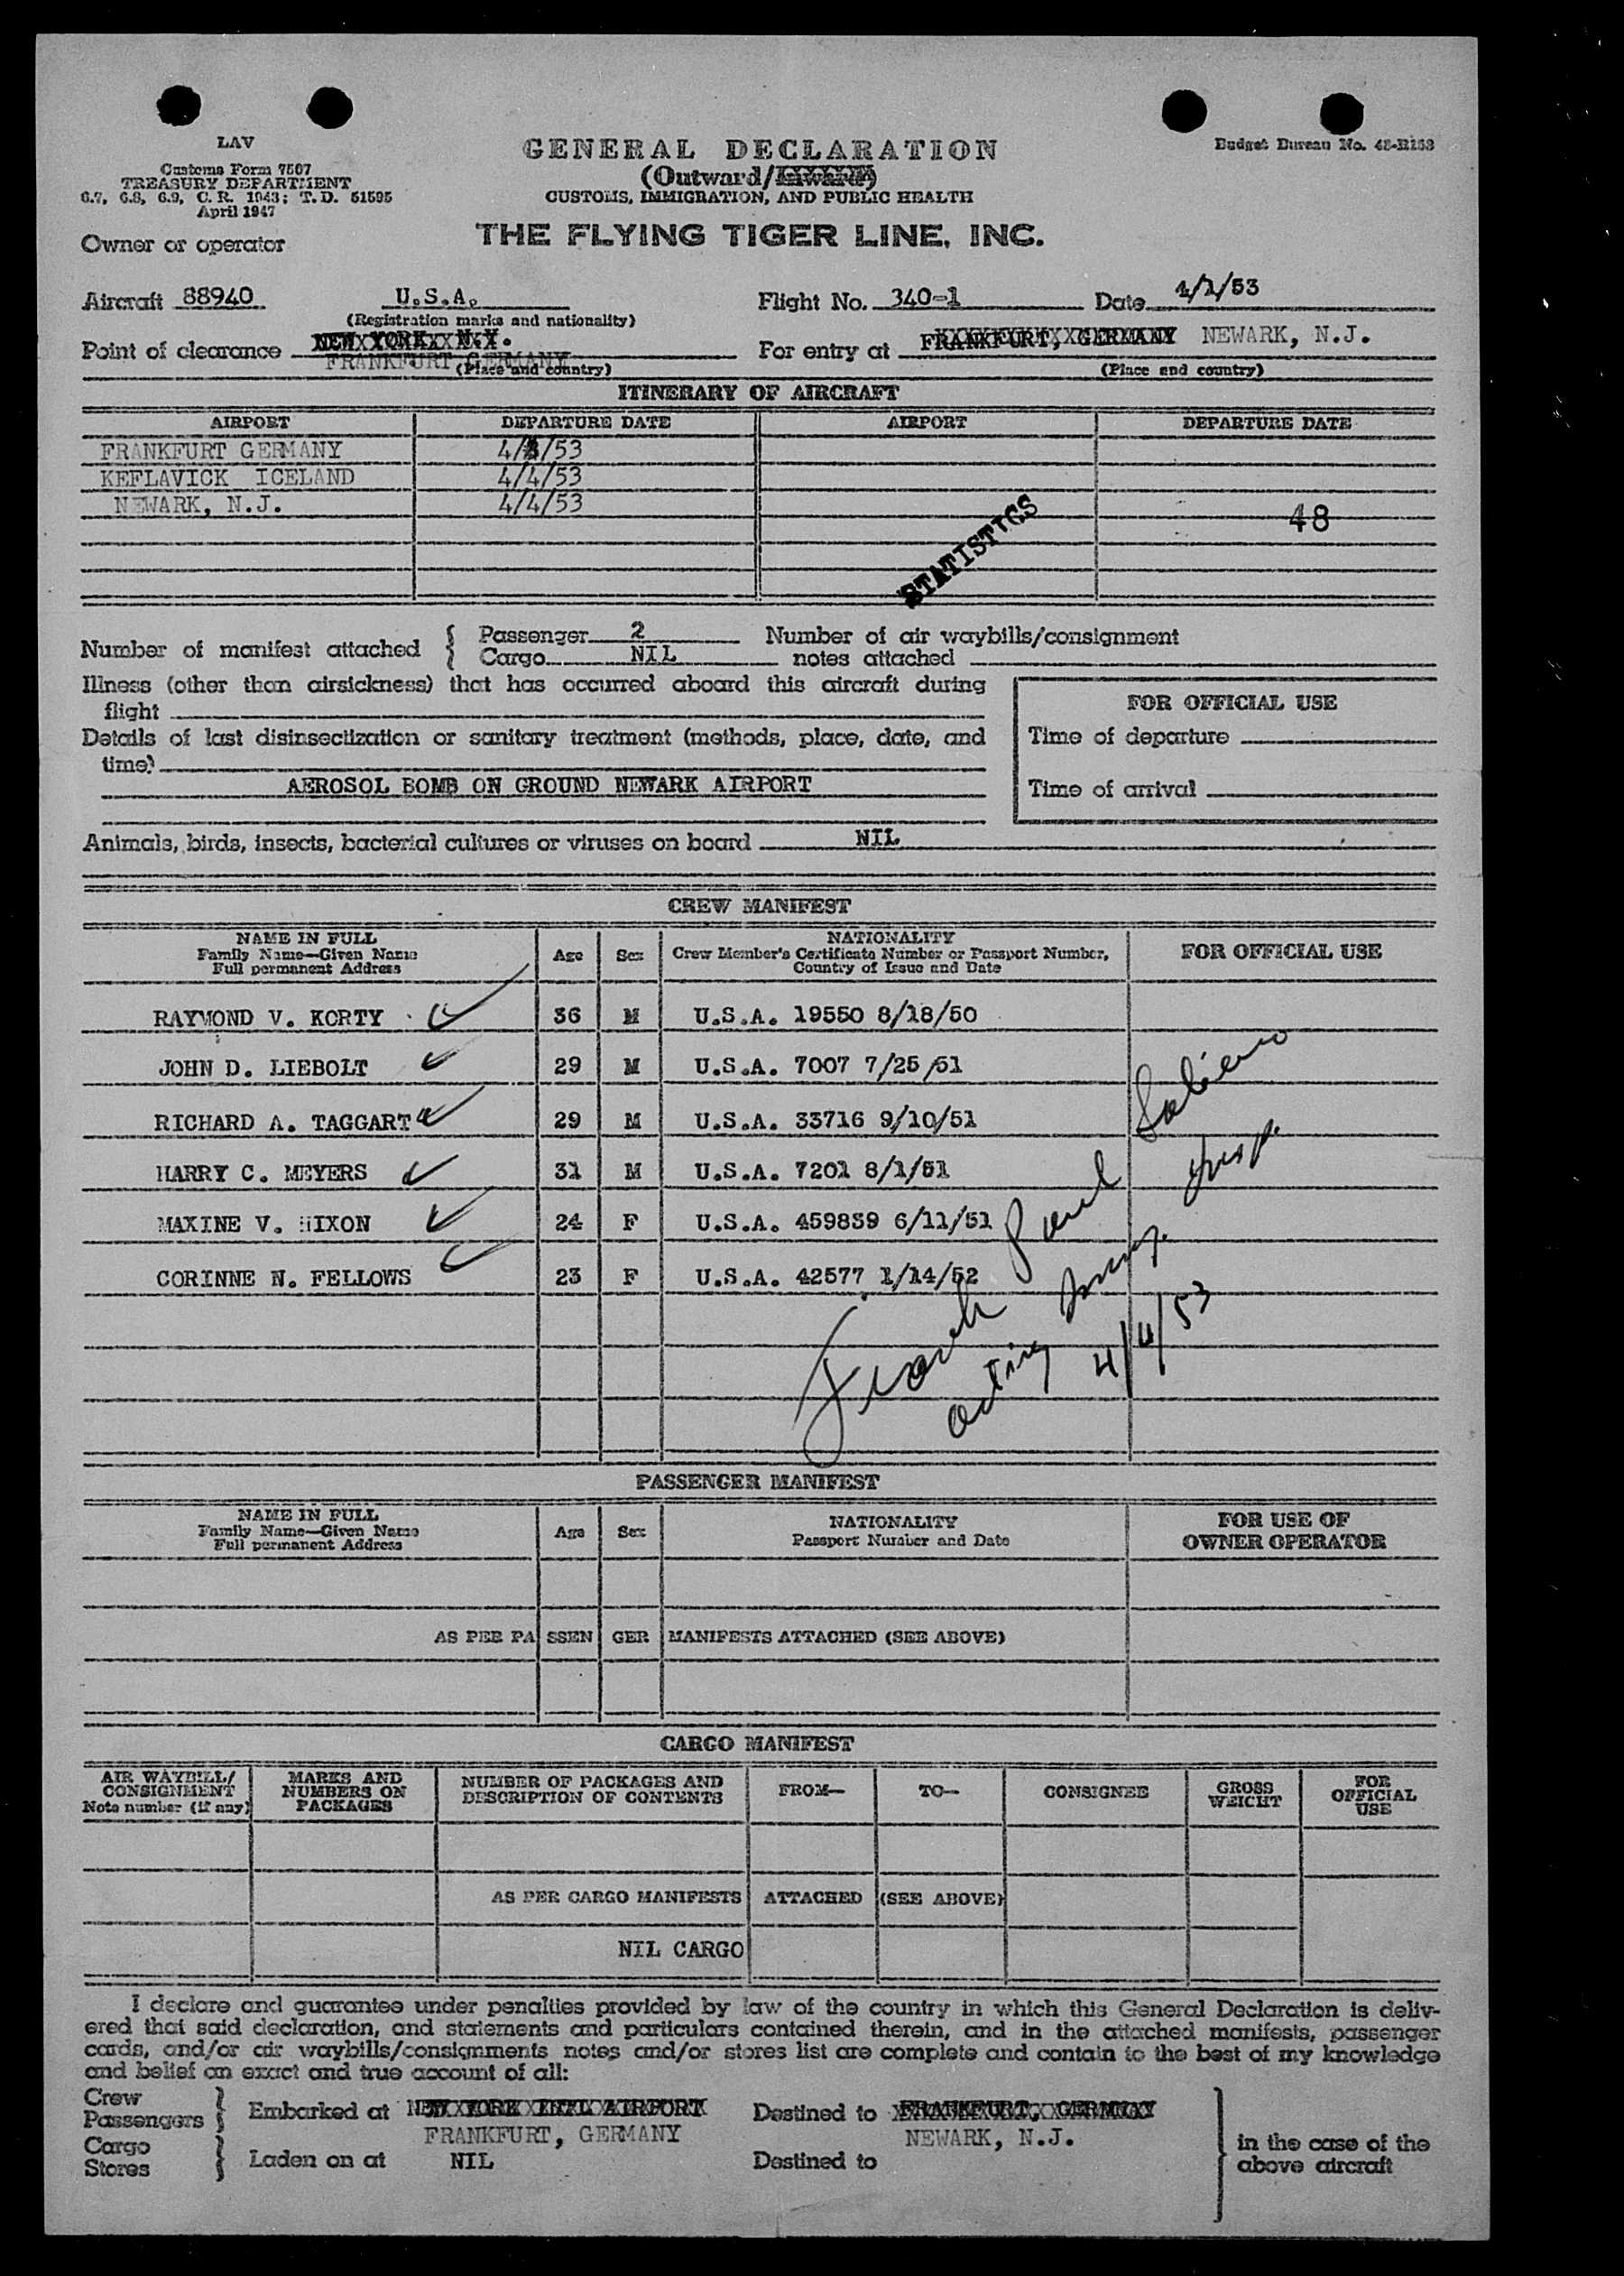 LAV
Customs Form 7507
TREASURY DEPARTMENT
6.7, 6.8, 6.9, C. R. 1943; T. D. 51595
April 1947
GENERAL DECLARATION
(Outward/Inward)
CUSTOMS, IMMIGRATION, AND PUBLIC HEALTH
Budget Bureau No.
Owner or operator THE FLYING TIGER LINE, INC.
Aircraft 88940 U.S.A. Flight No. 340-1 Date 4/1/53
(Registration marks and nationality)
Point of clearance NEW YORK, N.Y. For entry at FRANKFURT, GERMANY NEWARK, N.J.
FRANKFURT GERMANY
(Place and country) (Place and country)
ITINERARY OF AIRCRAFT
AIRPORT DEPARTURE DATE AIRPORT DEPARTURE DATE
FRANKFURT GERMANY 4/3/53
KEFLAVICK ICELAND 4/4/53
NEWARK, N.J. 4/4/53
STATISTICS
48
Number of manifest attached { Passenger 2 Number of air waybills/consignment
Cargo NIL notes attached
Illness (other than airsickness) that has occurred aboard this aircraft during
flight
FOR OFFICIAL USE
Details of last disinsectization or sanitary treatment (methods, place, date, and
time)
Time of departure
AEROSOL BOMB ON GROUND NEWARK AIRPORT
Time of arrival
Animals, birds, insects, bacterial cultures or viruses on board NIL
CREW MANIFEST
NAME IN FULL
Family Name—Given Name
Full permanent Address
Age Sex
NATIONALITY
Crew Member's Certificate Number or Passport Number,
Country of Issue and Date
FOR OFFICIAL USE
RAYMOND V. KORTY 36 M U.S.A. 19550 8/18/50
JOHN D. LIEBOLT 29 M U.S.A. 7007 7/25/51
RICHARD A. TAGGART 29 M U.S.A. 33716 9/10/51
HARRY C. MEYERS 31 M U.S.A. 7201 8/1/51
MAXINE V. HIXON 24 F U.S.A. 459839 6/11/51
CORINNE N. FELLOWS 23 F U.S.A. 42577 1/14/52
Frank Paul
acting Immig. Insp.
4/4/53
PASSENGER MANIFEST
NAME IN FULL
Family Name—Given Name
Full permanent Address
Age Sex
NATIONALITY
Passport Number and Date
FOR USE OF
OWNER OPERATOR
AS PER PASSENGER MANIFESTS ATTACHED (SEE ABOVE)
CARGO MANIFEST
AIR WAYBILL/
CONSIGNMENT
Note number (if any)
MARKS AND
NUMBERS ON
PACKAGES
NUMBER OF PACKAGES AND
DESCRIPTION OF CONTENTS
FROM—
TO—
CONSIGNEE
GROSS
WEIGHT
FOR
OFFICIAL
USE
AS PER CARGO MANIFESTS ATTACHED (SEE ABOVE)
NIL CARGO
I declare and guarantee under penalties provided by law of the country in which this General Declaration is deliv-
ered that said declaration, and statements and particulars contained therein, and in the attached manifests, passenger
cards, and/or air waybills/consignments notes and/or stores list are complete and contain to the best of my knowledge
and belief an exact and true account of all:
Crew
Passengers } Embarked at NEW YORK INTL AIRPORT Destined to FRANKFURT, GERMANY
FRANKFURT, GERMANY NEWARK, N.J.
Cargo
Stores } Laden on at NIL Destined to
in the case of the
above aircraft